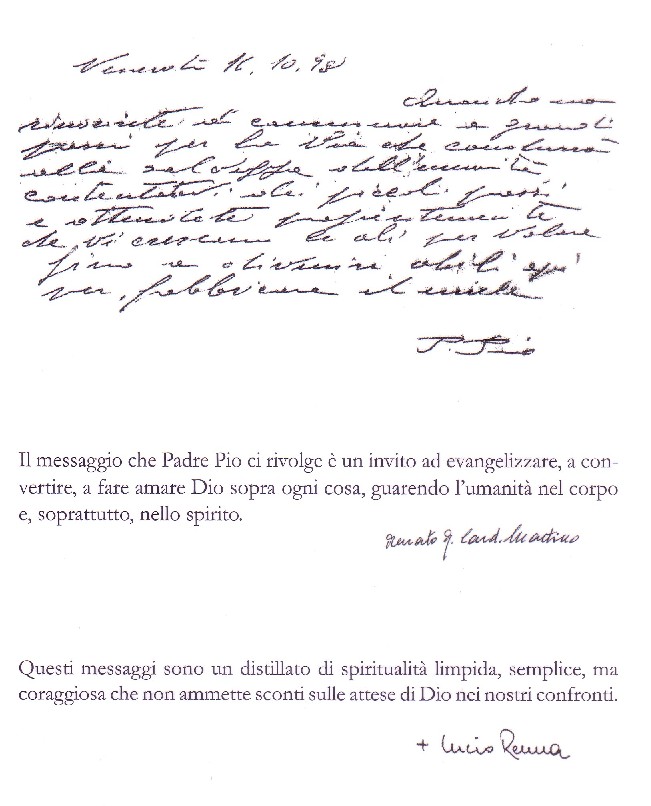 Venerdì 16.10.98
Quando non
riuscirete a camminare a grandi
passi per la via che conduce
alla salvezza dell'umanità
contentatevi dei piccoli passi
e attendete pazientemente
che vi crescano le ali per volare
fino a divenire abili api
per fabbricare il miele
P. Pio
Il messaggio che Padre Pio ci rivolge è un invito ad evangelizzare, a con-
vertire, a fare amare Dio sopra ogni cosa, guarendo l'umanità nel corpo
e, soprattutto, nello spirito.
Renato R. Card. Martino
Questi messaggi sono un distillato di spiritualità limpida, semplice, ma
coraggiosa che non ammette sconti sulle attese di Dio nei nostri confronti.
+ Lucio Renna